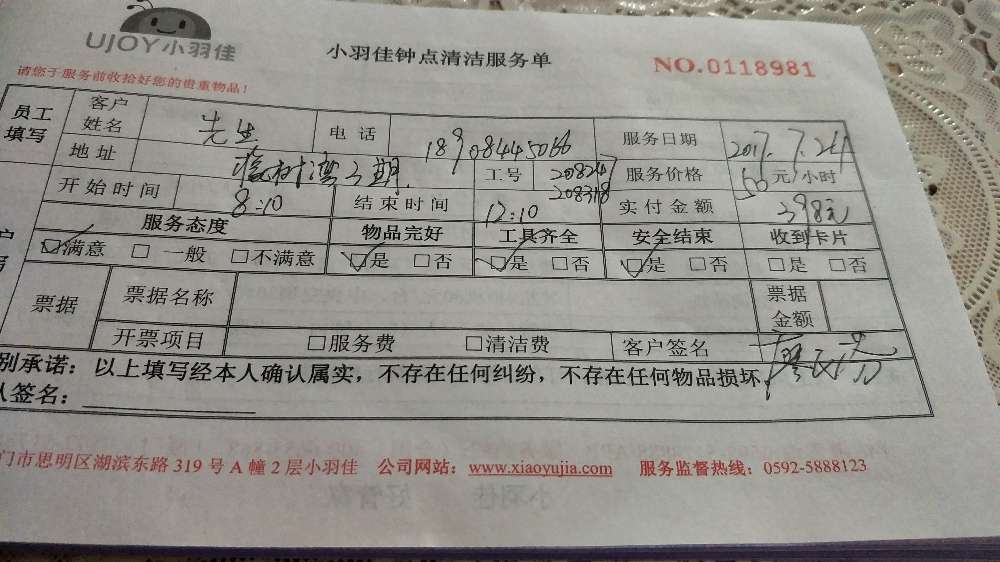 UJOY小羽佳
小羽佳钟点清洁服务单
NO.0118981
请您于服务前收拾好您的贵重物品!
员工填写 客户姓名 先生 电话 18908445066 服务日期 2017.7.26
地址 湾3期 工号 208247 208318 服务价格 50元/小时
开始时间 8:10 结束时间 12:10 实付金额 398元
服务态度 物品完好 工具齐全 安全结束 收到卡片
☑满意 □一般 □不满意 ☑是 □否 ☑是 □否 ☑是 □否 □是 □否
票据 票据名称 票据金额
开票项目 □服务费 □清洁费 客户签名
别承诺:以上填写经本人确认属实,不存在任何纠纷,不存在任何物品损坏。
人签名:
门市思明区湖滨东路 319 号 A 幢 2 层小羽佳 公司网站:www.xiaoyujia.com 服务监督热线:0592-5888123